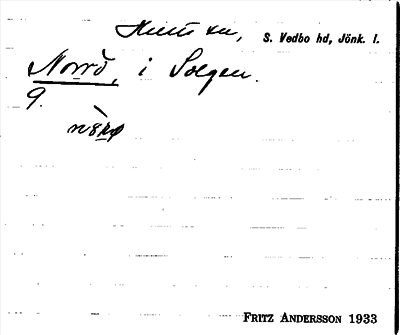 Hult sn, S. Vedbo hd, Jönk. l.
Norrö, i Solgen.
9.
FRITZ ANDERSSON 1933